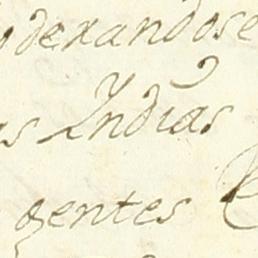 oderandose
as Indias
gentes